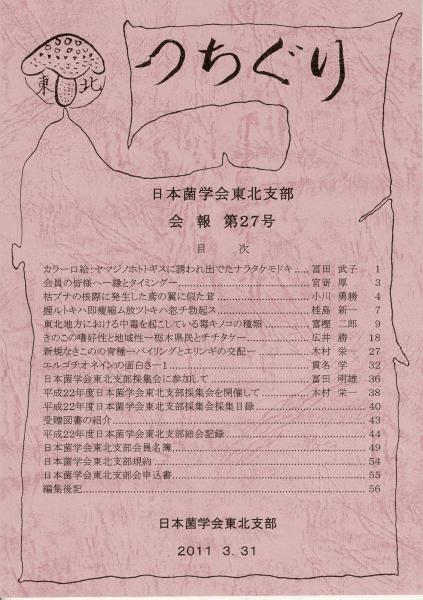 東北
つちぐり
日本菌学会東北支部
会 報 第27号
目 次
カラー口絵:ヤマジノホトトギスに誘われ出でたナラタケモドキ.....冨田 武子 1
会員の皆様へー縁とタイミングー.....宮嵜 厚 3
枯ブナの根際に発生した鳶の翼に似た茸.....小川 勇勝 4
握ルトキハ即痩縮ム放ツトキハ忽チ勃起ス.....桂島 新一 7
東北地方における中毒を起こしている毒キノコの種類.....富樫 二郎 9
きのこの嗜好性と地域性ー栃木県民とチチタケー.....広井 勝 18
新規なきのこの育種ーバイリングとエリンギの交配ー.....木村 栄一 27
エルゴチオネインの面白さー1.....貫名 学 32
日本菌学会東北支部採集会に参加して.....冨田 明雄 36
平成22年度日本菌学会東北支部採集会を開催して.....木村 栄一 38
平成22年度日本菌学会東北支部採集会採集目録.....40
受贈図書の紹介.....43
平成22年度日本菌学会東北支部総会記録.....44
日本菌学会東北支部会員名簿.....49
日本菌学会東北支部規約.....54
日本菌学会東北支部会申込書.....55
編集後記.....56
日本菌学会東北支部
2011 3.31